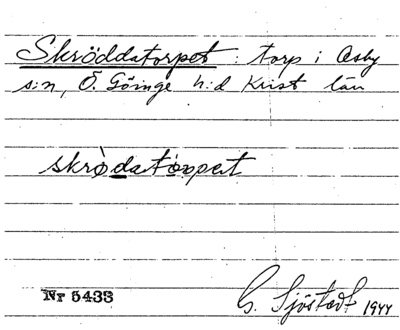 Skröddatorpet : torp i Osby
s:n, Ö. Göinge h:d Krist län
skròdatòrpet
Nr 5433
G. Sjöstedt 1944